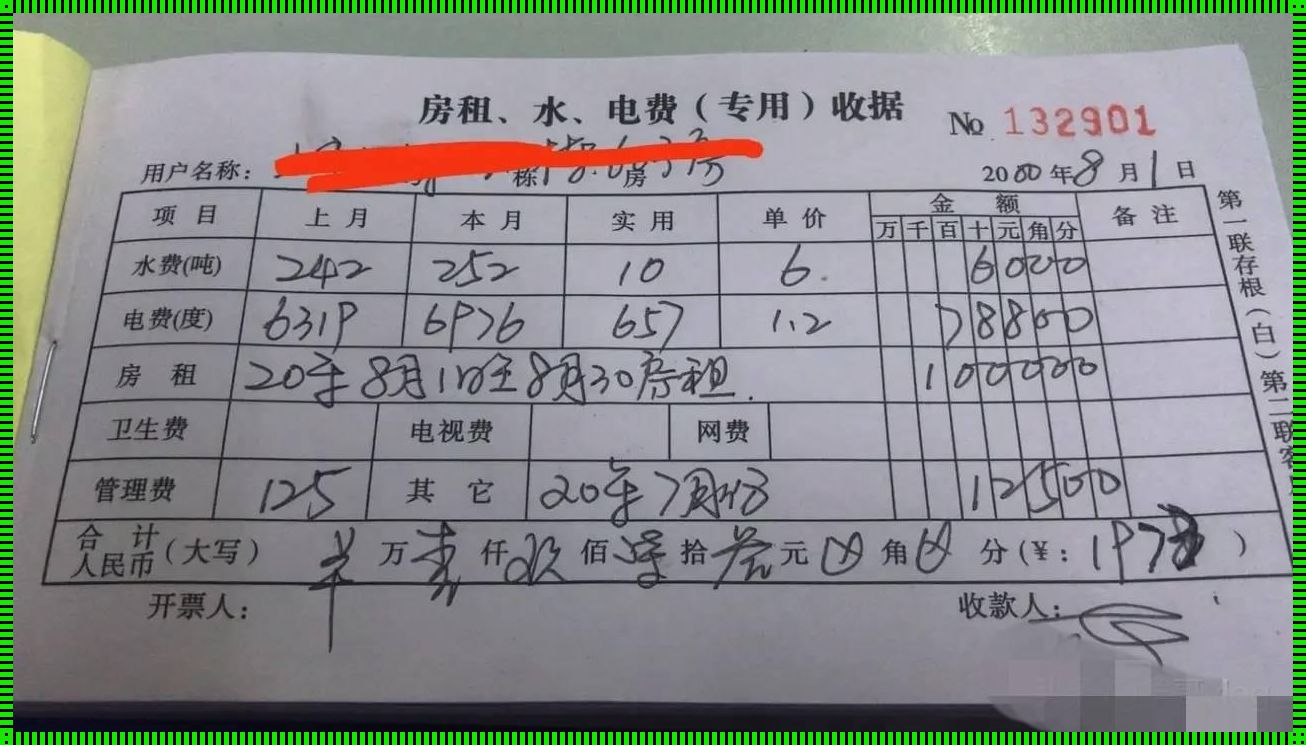 房租、水、电费（专用）收据
No 132901
用户名称： 栋 房
2000年8月1日
项目 上月 本月 实用 单价 金额 备注
万 千 百 十 元 角 分
水费(吨) 242 252 10 6. 6000
电费(度) 6319 6976 657 1.2 78800
房租 20年8月1日至8月30房租. 100000
卫生费 电视费 网费
管理费 125 其它 20年7月份 12500
合计人民币（大写） 万 壹 仟 玖 佰 拾 叁 元 角 分（¥：197 ）
开票人： 收款人：
第一联存根（白）第二联客